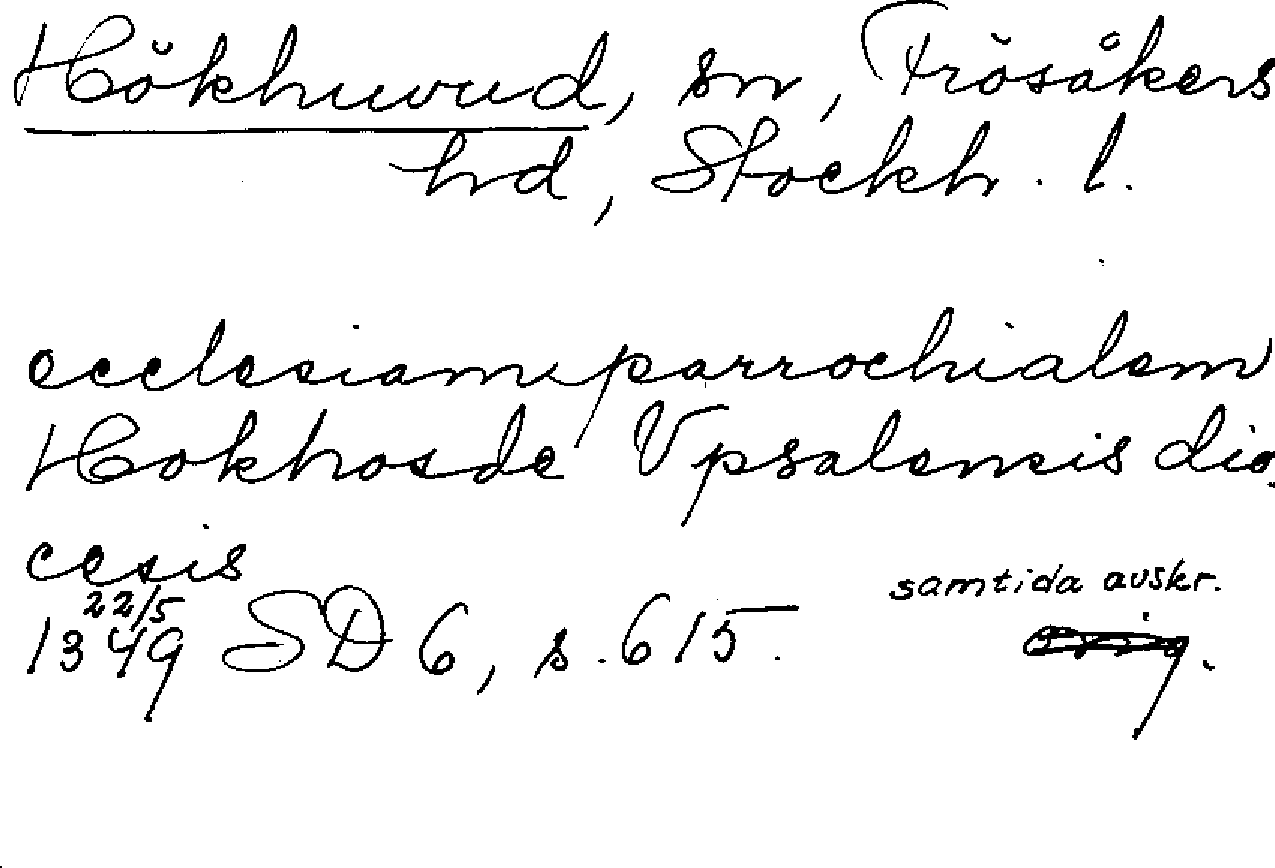 Hökhuvud, sn, Frösåkers
hd, Stockh. l.
ecclesiam parrochialem
Hokhosde Vpsalensis dio
cesis
22/5
1349 SD 6, s. 615.
samtida avskr.
orig.